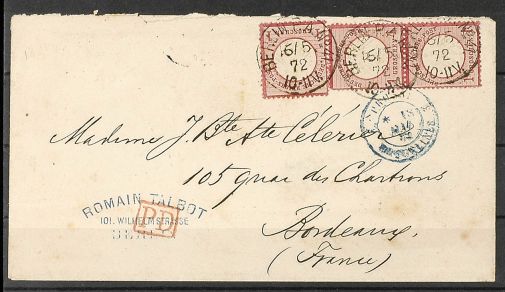 BERLIN
6/5
72
10-11V.
BERLIN P.A.
6/5
72
10-11V.
6/5
72
10-11V.
Madame J. Bte Ate Célérier
105 quai des Chartrons
Bordeaux
(France)
ROMAIN TALBOT
101. WILHELMSTRASSE
BERLIN
P.D.